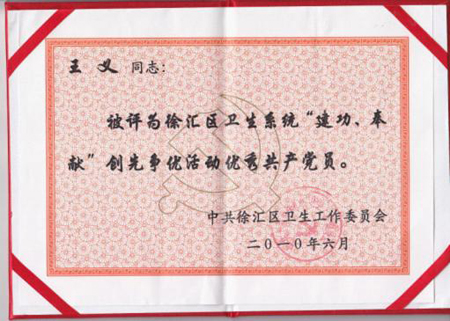 王义 同志:
被评为徐汇区卫生系统“建功、奉
献”创先争优活动优秀共产党员。
中共徐汇区卫生工作委员会
二〇一〇年六月